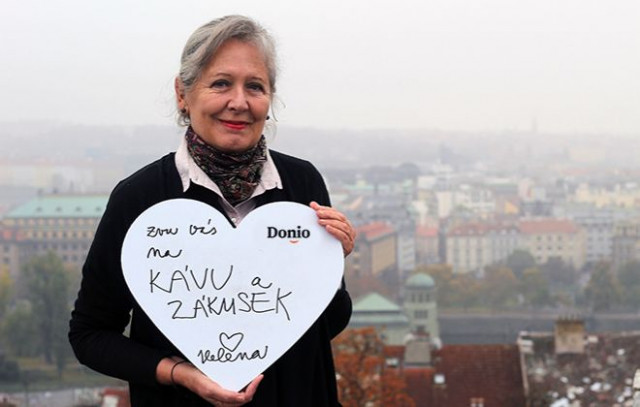 zvu vás
Donio
na
KÁVU a
ZÁKUSEK
Helena